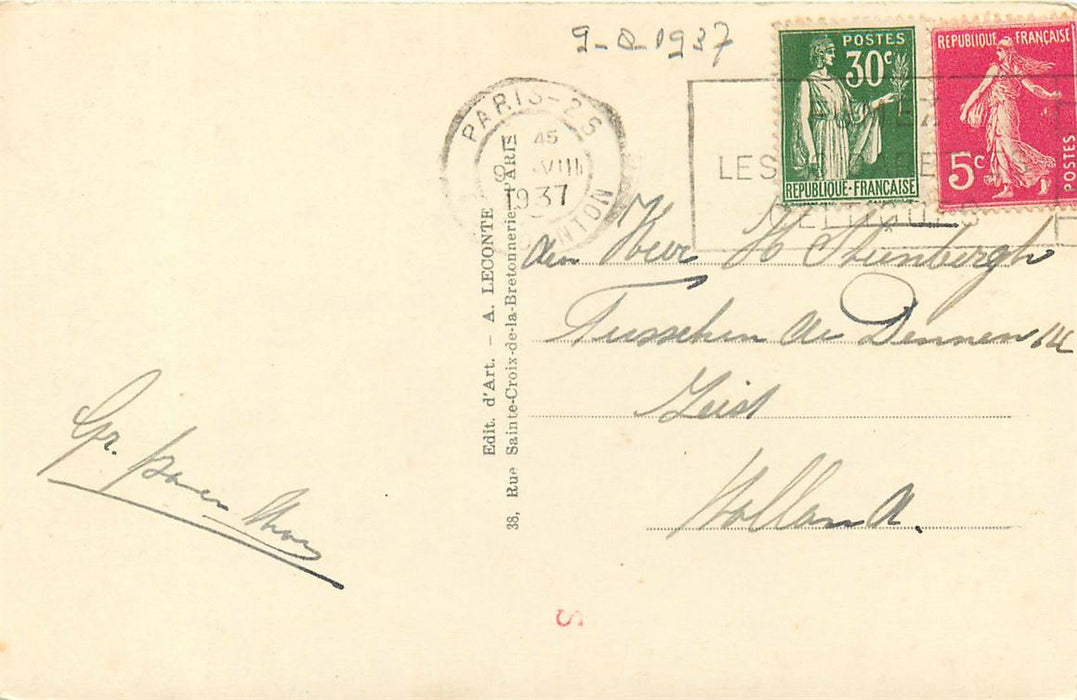 9-8-1937
POSTES
30c
REPUBLIQUE-FRANÇAISE
REPUBLIQUE FRANÇAISE
5c
POSTES
PARIS-25
45
VIII
1937
LES
Edit. d'Art. - A. LECONTE
38, Rue Sainte-Croix-de-la-Bretonnerie, PARIS
den Heer H Steenbergh
Tusschen de Dennen 14
Zeist
Holland.
Gr.
S